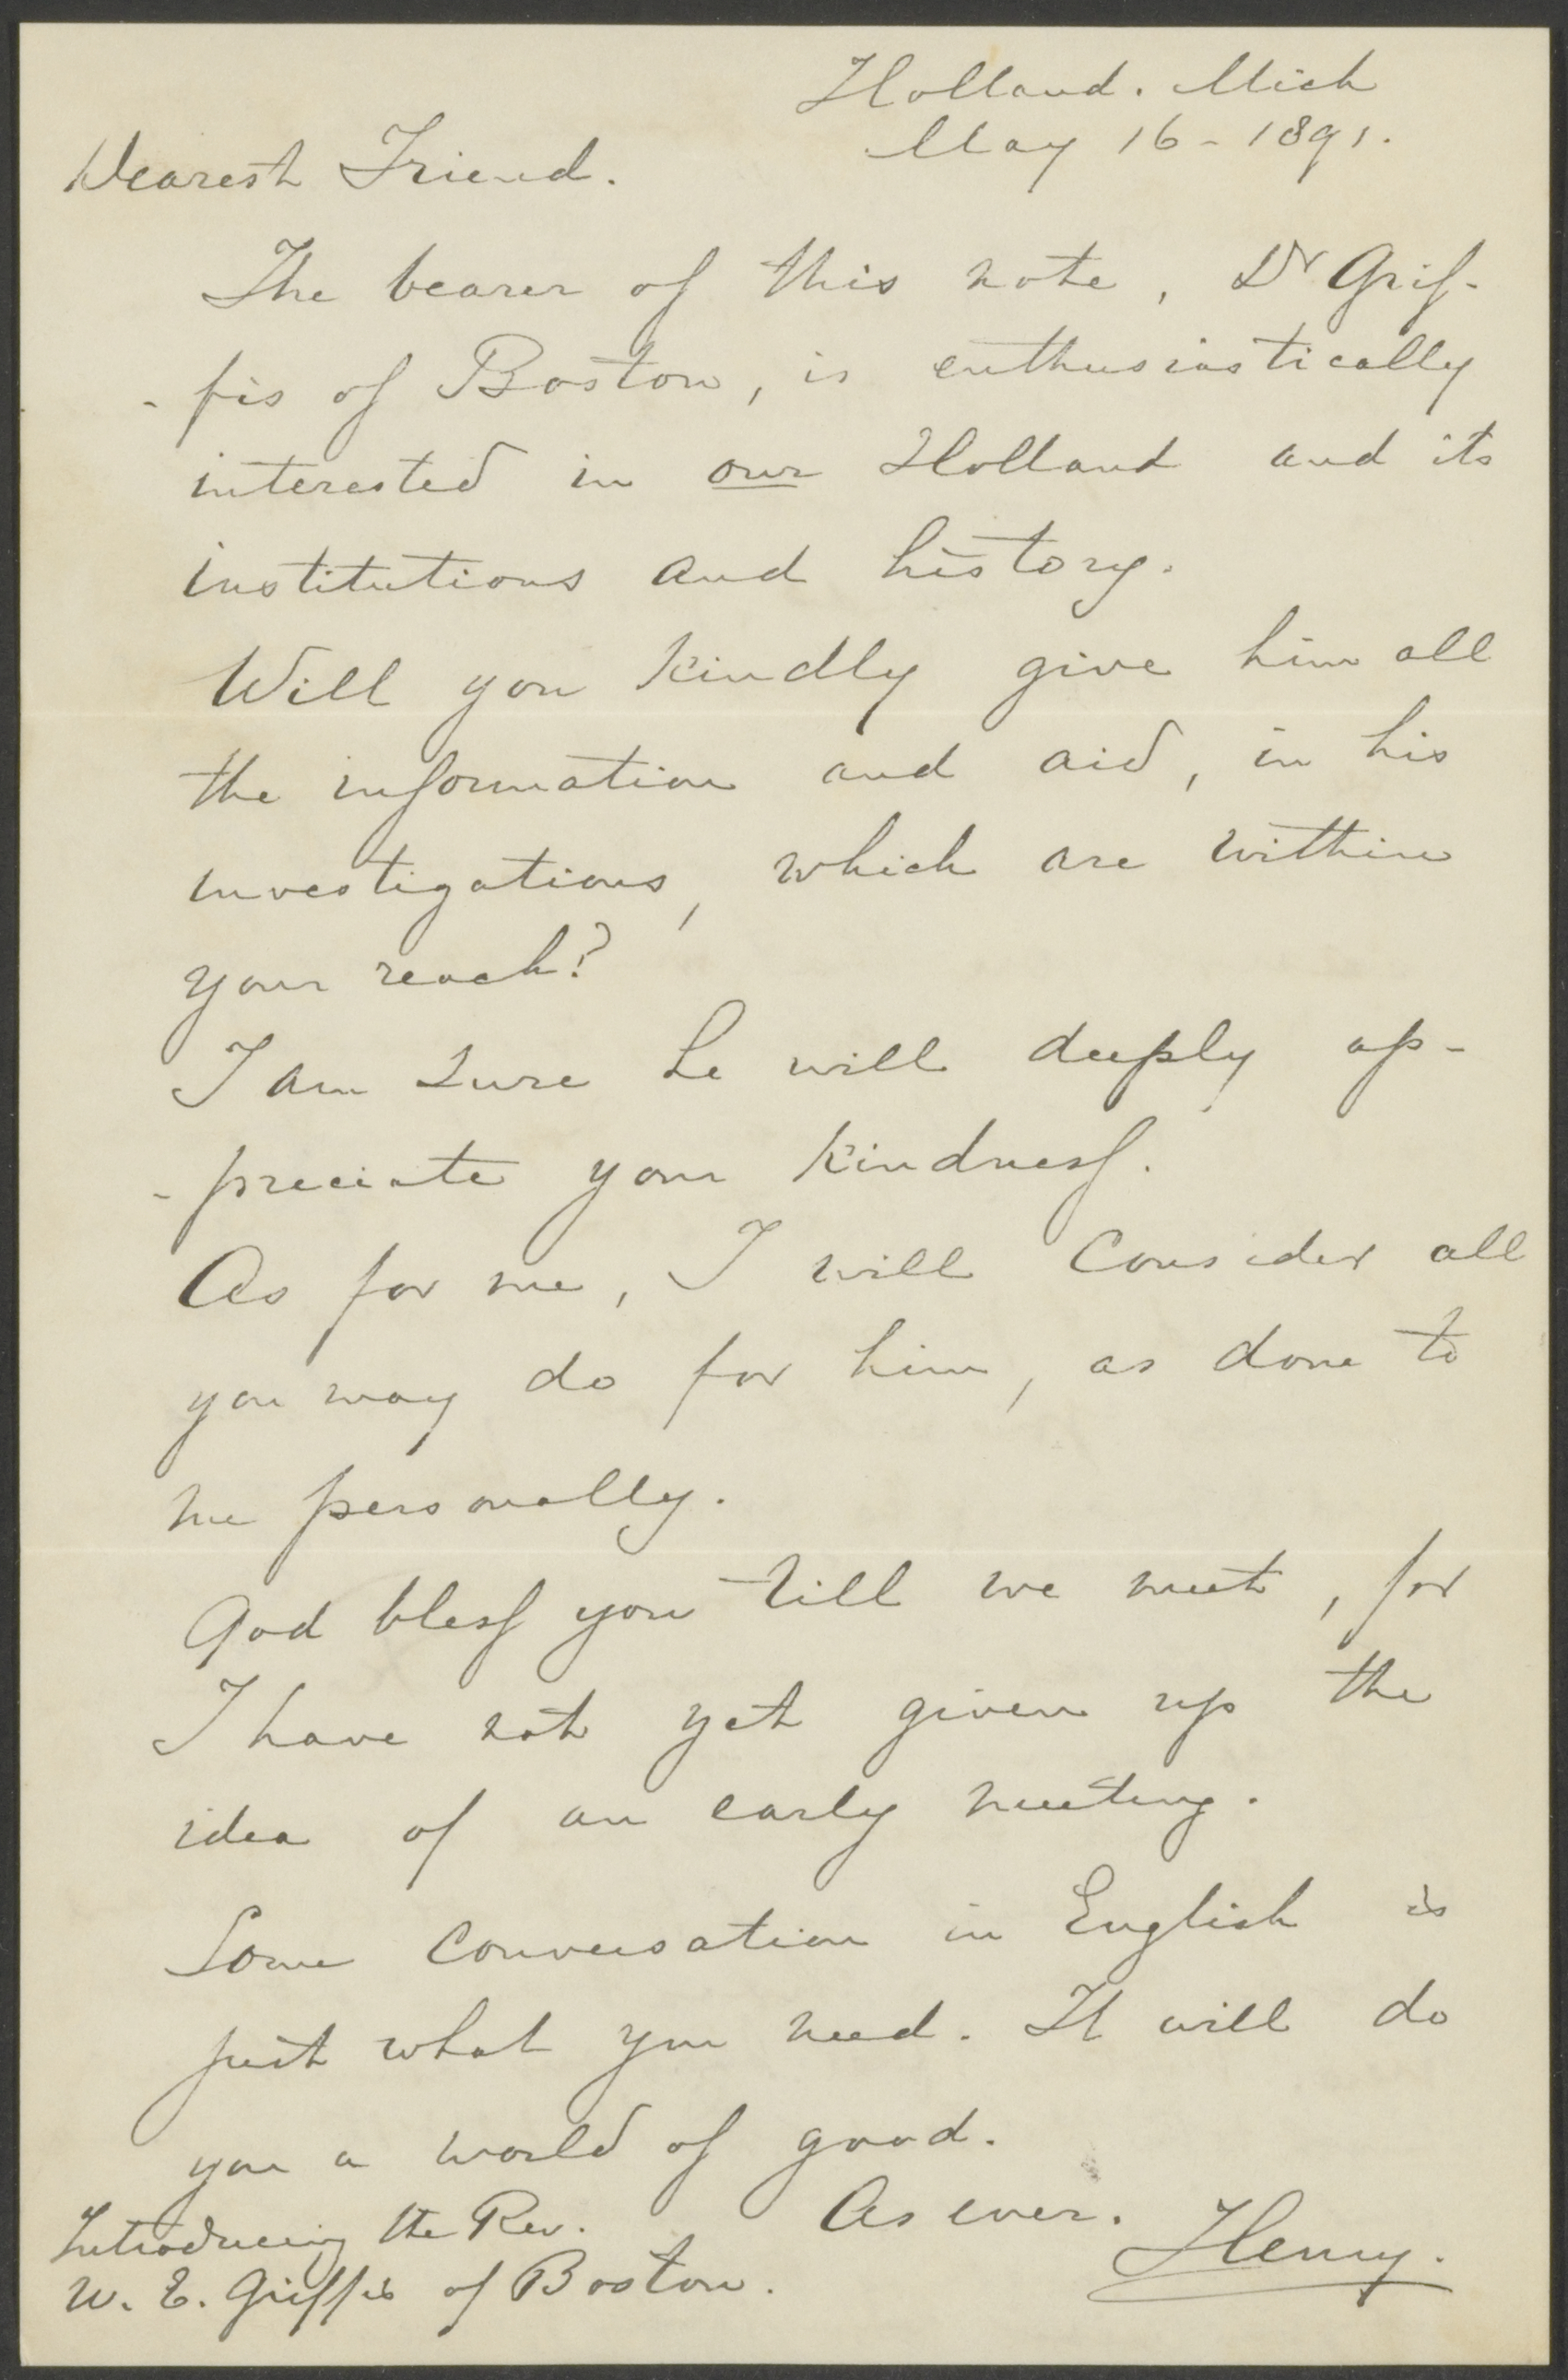 Holland. Mich
May 16 - 1891.
Dearest Friend.
The bearer of this note, Dr Grif-
- fis of Boston, is enthusiastically
interested in our Holland and its
institutions and history.
Will you kindly give him all
the information and aid, in his
investigations, which are within
your reach?
I am sure he will deeply ap-
- preciate your kindness.
As for me, I will consider all
you may do for him, as done to
me personally.
God bless you till we meet, for
I have not yet given up the
idea of an early meeting.
Some conversation in English is
just what you need. It will do
you a world of good.
As ever. Henry.
Introducing the Rev.
W. E. Griffis of Boston.